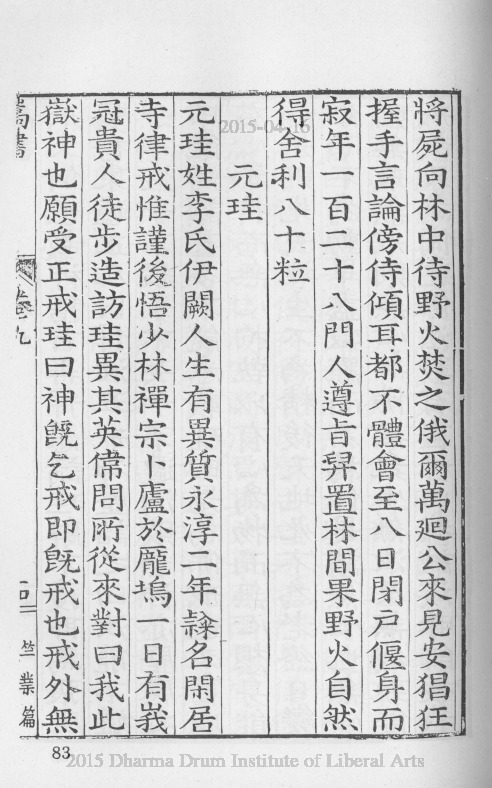 將屍向林中待野火焚之俄爾萬迴公來見安猖狂
握手言論傍侍傾耳都不體會至八日閉戶偃身而
寂年一百二十八門人遵旨舁置林間果野火自然
得舍利八十粒
元珪
元珪姓李氏伊闕人生有異質永淳二年隸名閑居
寺律戒惟謹後悟少林禪宗卜廬於龐塢一日有峩
冠貴人徒步造訪珪異其英偉問所從來對曰我此
嶽神也願受正戒珪曰神旣乞戒即旣戒也戒外無
嵩書
卷九
竺業篇
83
2015-04-16
2015 Dharma Drum Institute of Liberal Arts